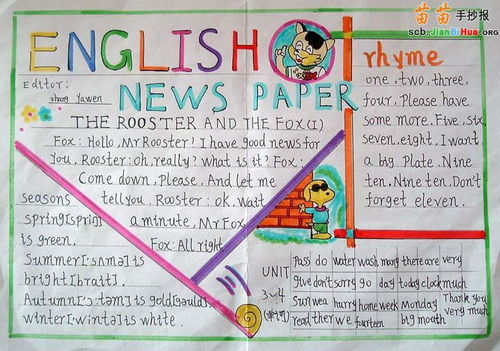 苗苗手抄报
scb.JianBiHua.ORG
ENGLISH
NEWS PAPER
Editor:
zhang Yawen
THE ROOSTER AND THE FOX(1)
Fox: Hollo, Mr Rooster! I have good news for
You. Rooster: oh, really? what is it? Fox:
Come down, Please. And let me
tell you. Rooster: ok. Wait
a minute, Mr Fox
Fox: All right
seasons
spring[spriŋ]
is green.
Summer['sʌmə] is
bright[brait].
Autumn['ɔ:təm] is gold[gəuld].
winter['wintə] is white.
rhyme
one, two, three,
four. Please have
some more. Five, six
seven, eight. I want
a big Plate. Nine
ten. Nine ten. Don't
forget eleven.
UNIT
3~4
Pass do water wash many there are very
give don't sorry go day today clock much
Sun wea hurry home week Monday Thank you very much
read ther we fourteen big mouth